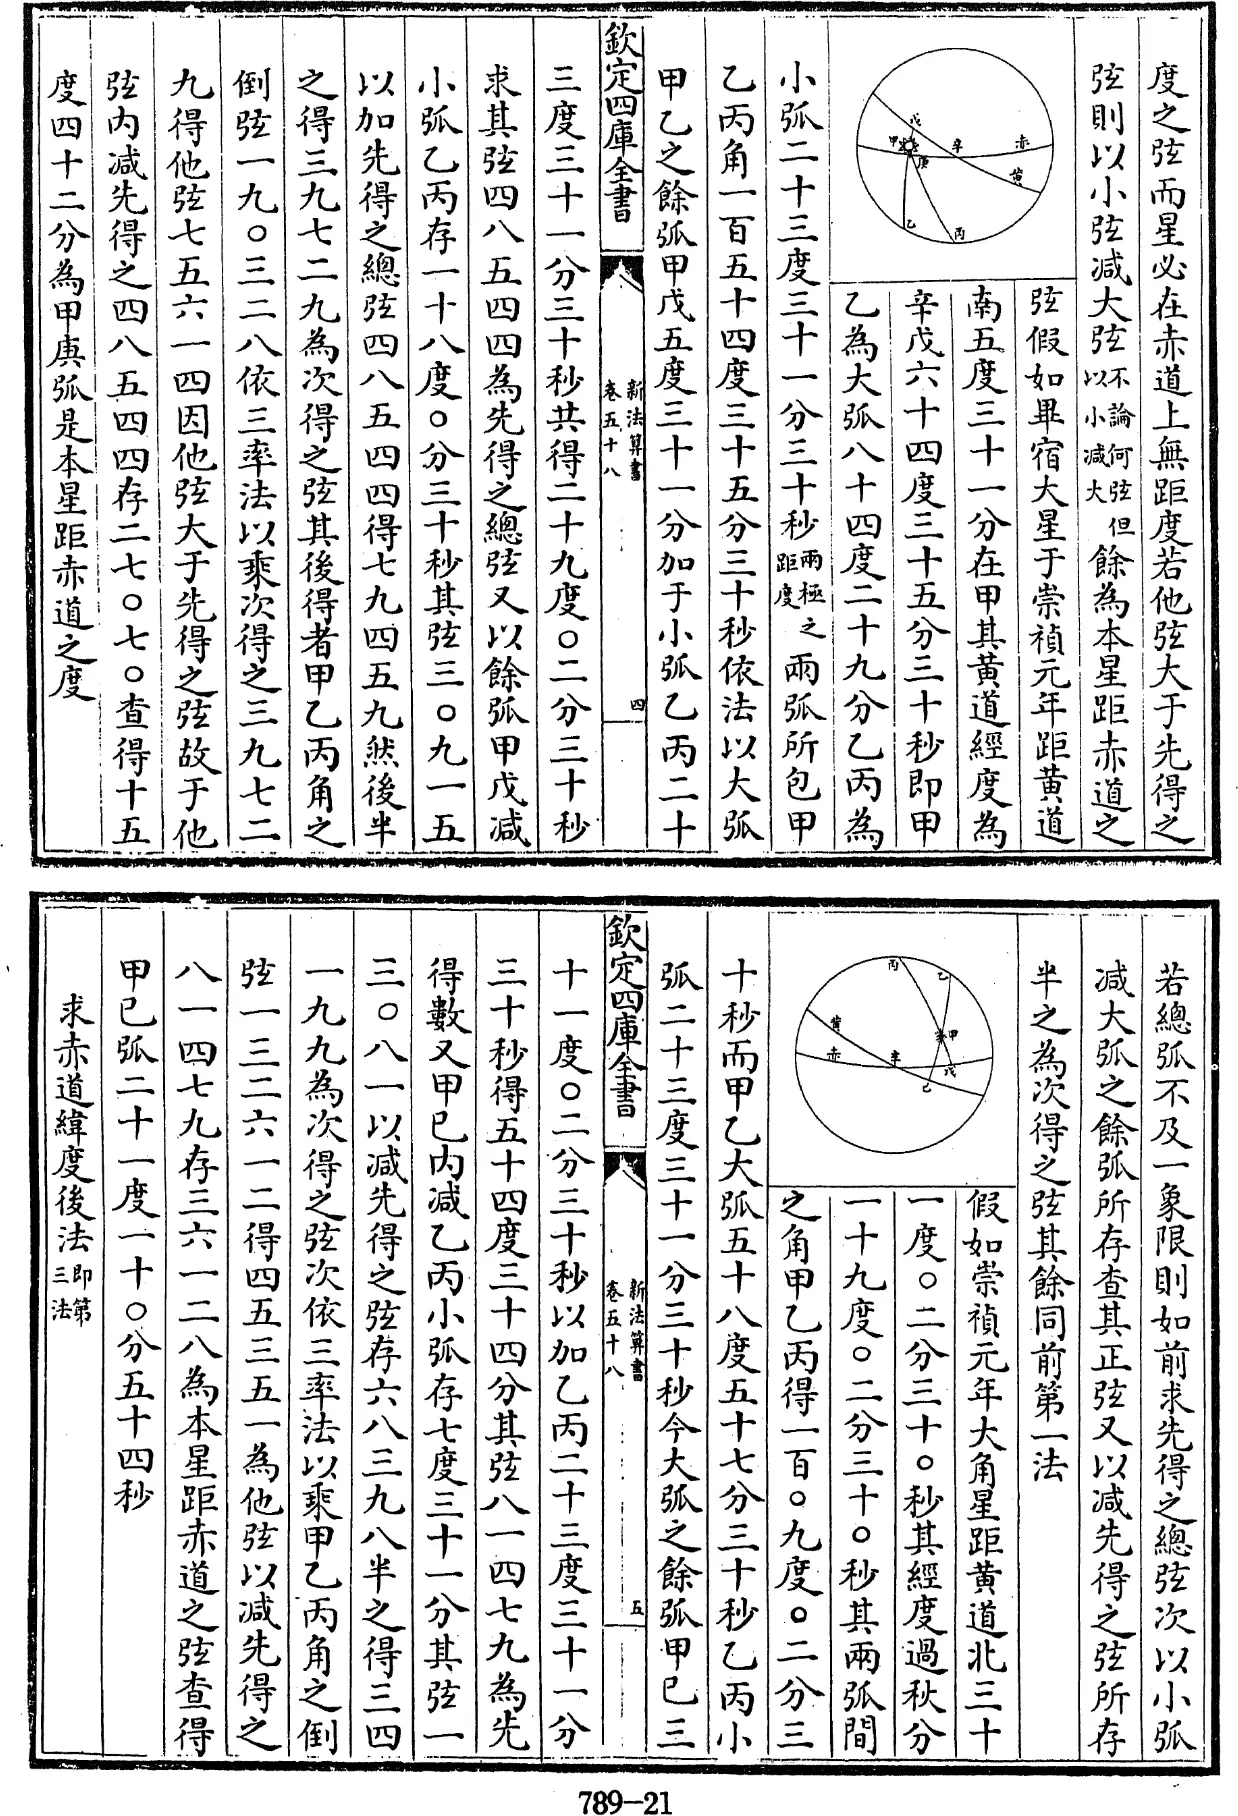 度之弦而星必在赤道上無距度若他弦大于先得之
弦則以小弦減大弦不論何弦但以小減大餘為本星距赤道之
戊
甲
庚
辛
赤
黃
乙
丙
弦假如畢宿大星于崇禎元年距黃道
南五度三十一分在甲其黃道經度為
辛戊六十四度三十五分三十秒即甲
乙為大弧八十四度二十九分乙丙為
小弧二十三度三十一分三十秒兩極之距度兩弧所包甲
乙丙角一百五十四度三十五分三十秒依法以大弧
甲乙之餘弧甲戊五度三十一分加于小弧乙丙二十
欽定四庫全書
新法算書
卷五十八
四
三度三十一分三十秒共得二十九度〇二分三十秒
求其弦四八五四四為先得之總弦又以餘弧甲戊減
小弧乙丙存一十八度〇分三十秒其弦三〇九一五
以加先得之總弦四八五四四得七九四五九然後半
之得三九七二九為次得之弦其後得者甲乙丙角之
倒弦一九〇三二八依三率法以乘次得之三九七二
九得他弦七五六一四因他弦大于先得之弦故于他
弦内減先得之四八五四四存二七〇七〇查得十五
度四十二分為甲庚弧是本星距赤道之度
若總弧不及一象限則如前求先得之總弦次以小弧
減大弧之餘弧所存查其正弦又以減先得之弦所存
半之為次得之弦其餘同前第一法
丙
乙
黃
赤
辛
甲
戊
己
假如崇禎元年大角星距黃道北三十
一度〇二分三十〇秒其經度過秋分
一十九度〇二分三十〇秒其兩弧間
之角甲乙丙得一百〇九度〇二分三
十秒而甲乙大弧五十八度五十七分三十秒乙丙小
弧二十三度三十一分三十秒今大弧之餘弧甲已三
欽定四庫全書
新法算書
卷五十八
五
十一度〇二分三十秒以加乙丙二十三度三十一分
三十秒得五十四度三十四分其弦八一四七九為先
得數又甲已内減乙丙小弧存七度三十一分其弦一
三〇八一以減先得之弦存六八三九八半之得三四
一九九為次得之弦次依三率法以乘甲乙丙角之倒
弦一三二六一二得四五三五一為他弦以減先得之
八一四七九存三六一二八為本星距赤道之弦查得
甲已弧二十一度一十〇分五十四秒
求赤道緯度後法即第三法
789-21